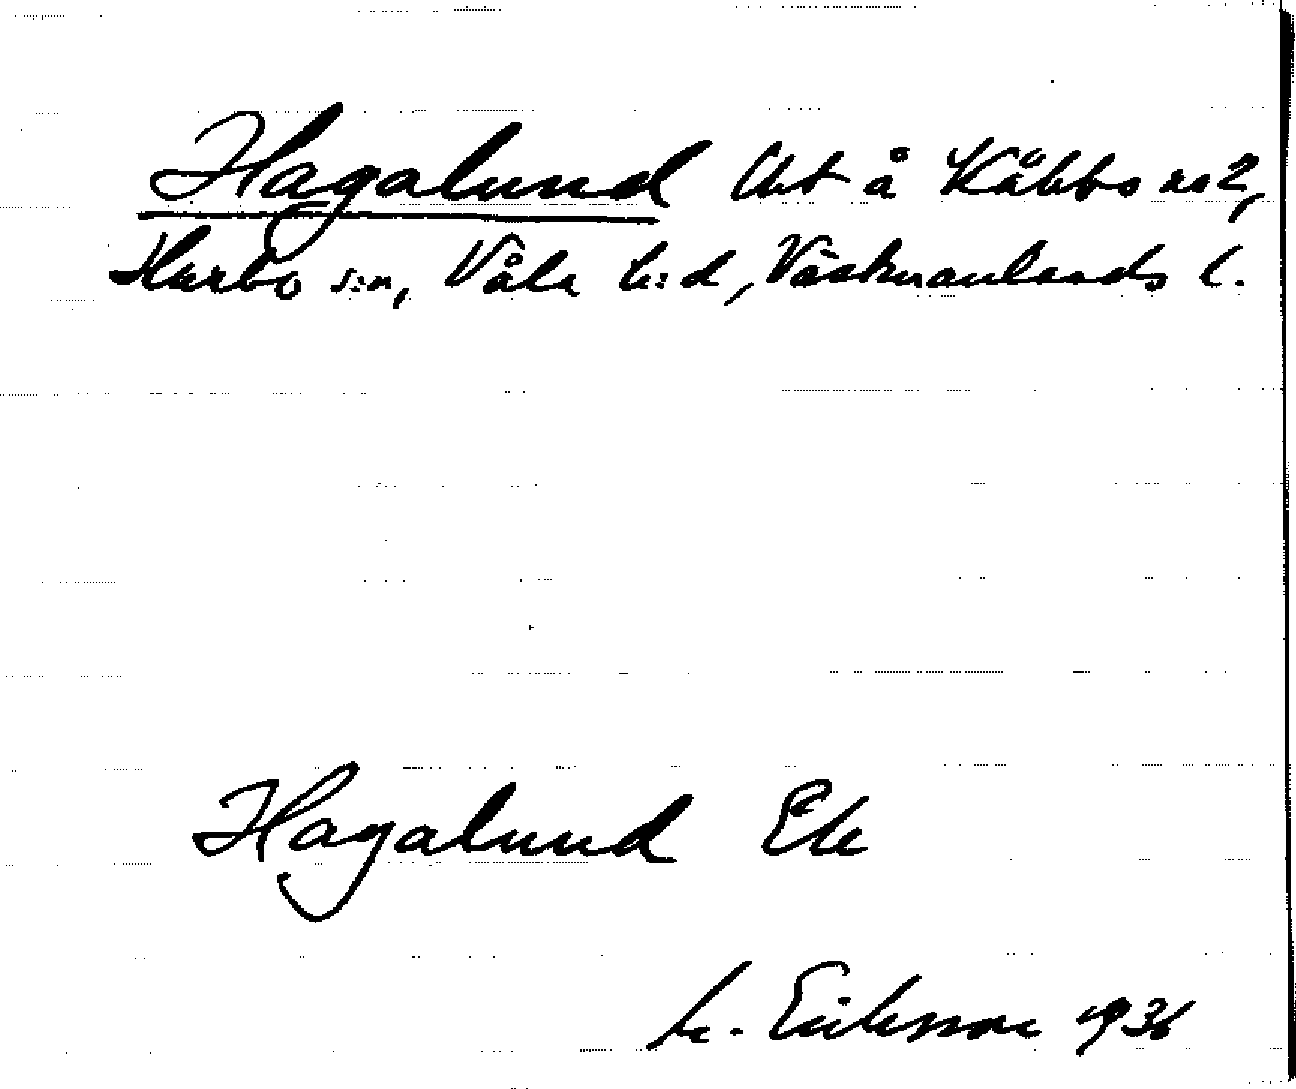 Hagalund Äbt å Kåbbo no 2,
Harbo s:n, Våla h:d, Västmanlands l.
Hagalund Ek
L. Eriksson 1936